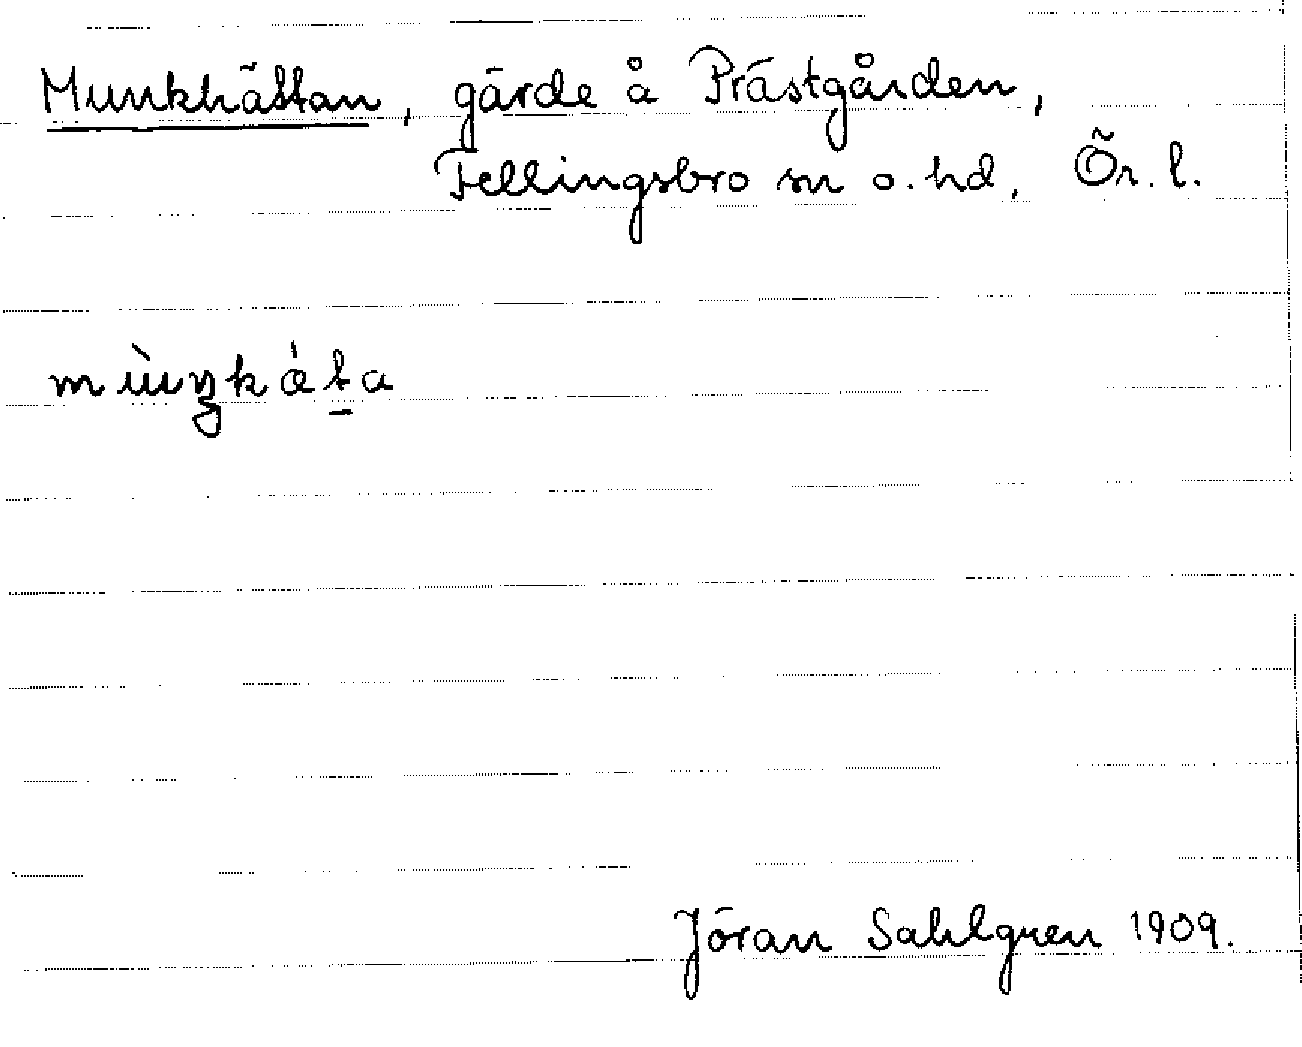 Munkhättan, gärde å Prästgården,
Fellingsbro sn o. hd, Ör. l.
mùŋkǽt̠a
Jöran Sahlgren 1909.